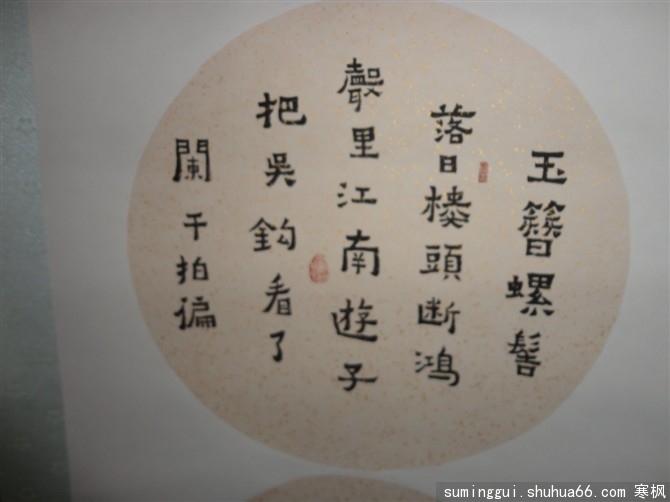 玉簪螺髻
落日楼頭断鴻
聲里江南遊子
把吴鈎看了
闌干拍徧
suminggui.shuhua66.com 寒枫